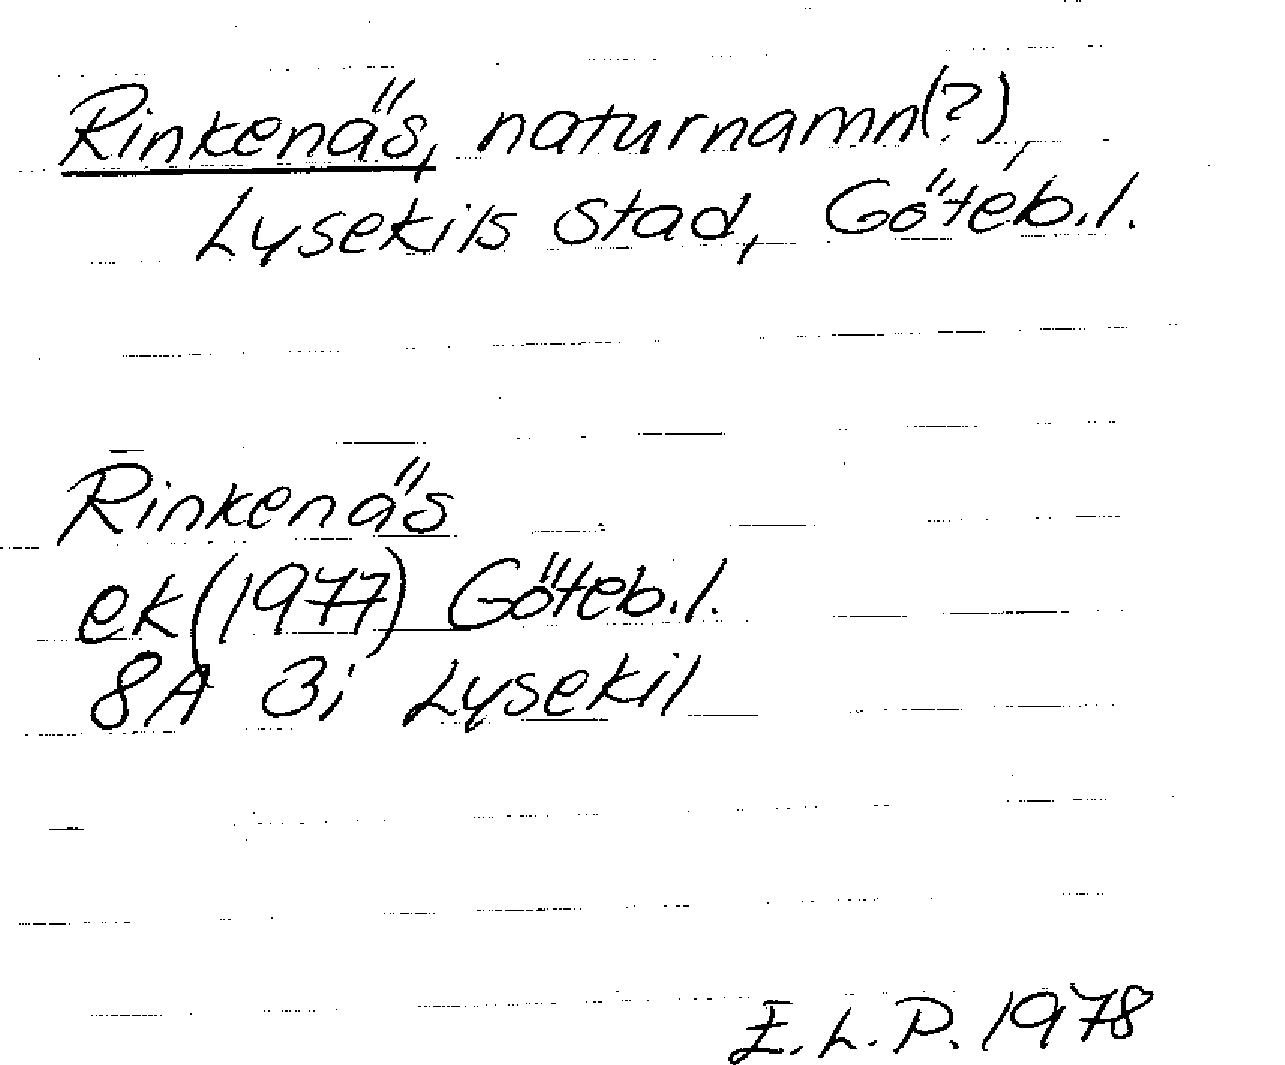 Rinkenäs, naturnamn(?),
Lysekils stad, Göteb.l.
Rinkenäs
ek(1977) Göteb.l.
8A 3i Lysekil
E.L.P. 1978